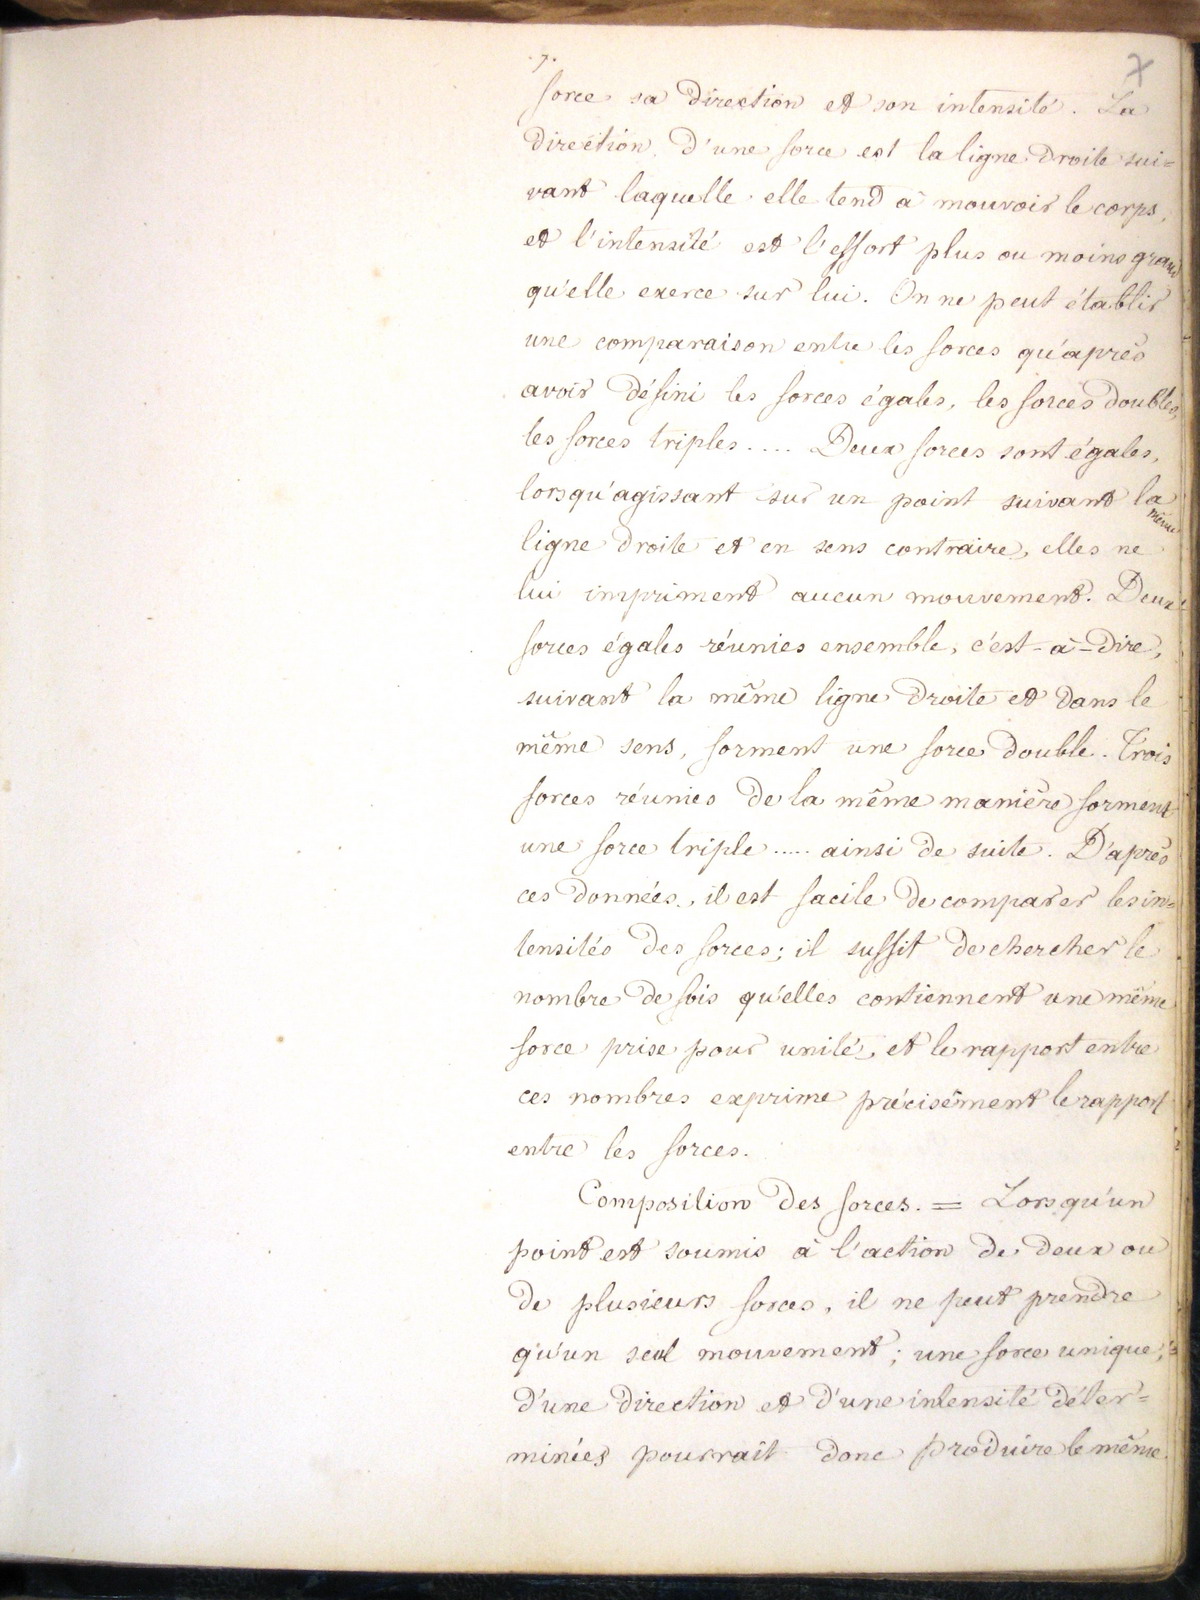 .7.
7
force sa direction et son intensité. La
direction d'une force est la ligne droite sui=
vant laquelle elle tend à mouvoir le corps,
et l'intensité est l'effort plus ou moins grand
qu'elle exerce sur lui. On ne peut établir
une comparaison entre les forces qu'après
avoir défini les forces égales, les forces doubles,
les forces triples.... Deux forces sont égales,
lorsqu'agissant sur un point suivant la
même
ligne droite et en sens contraire, elles ne
lui impriment aucun mouvement. Deux
forces égales réunies ensemble, c'est-à-dire,
suivant la même ligne droite et dans le
même sens, forment une force double. Trois
forces réunies de la même manière forment
une force triple ..... ainsi de suite. D'après
ces données, il est facile de comparer les in=
tensités des forces; il suffit de chercher le
nombre de fois qu'elles contiennent une même
force prise pour unité, et le rapport entre
ces nombres exprime précisément le rapport
entre les forces.
Composition des forces. = Lorsqu'un
point est soumis à l'action de deux ou
de plusieurs forces, il ne peut prendre
qu'un seul mouvement; une force unique,
d'une direction et d'une intensité déter=
minées pourrait donc produire le même